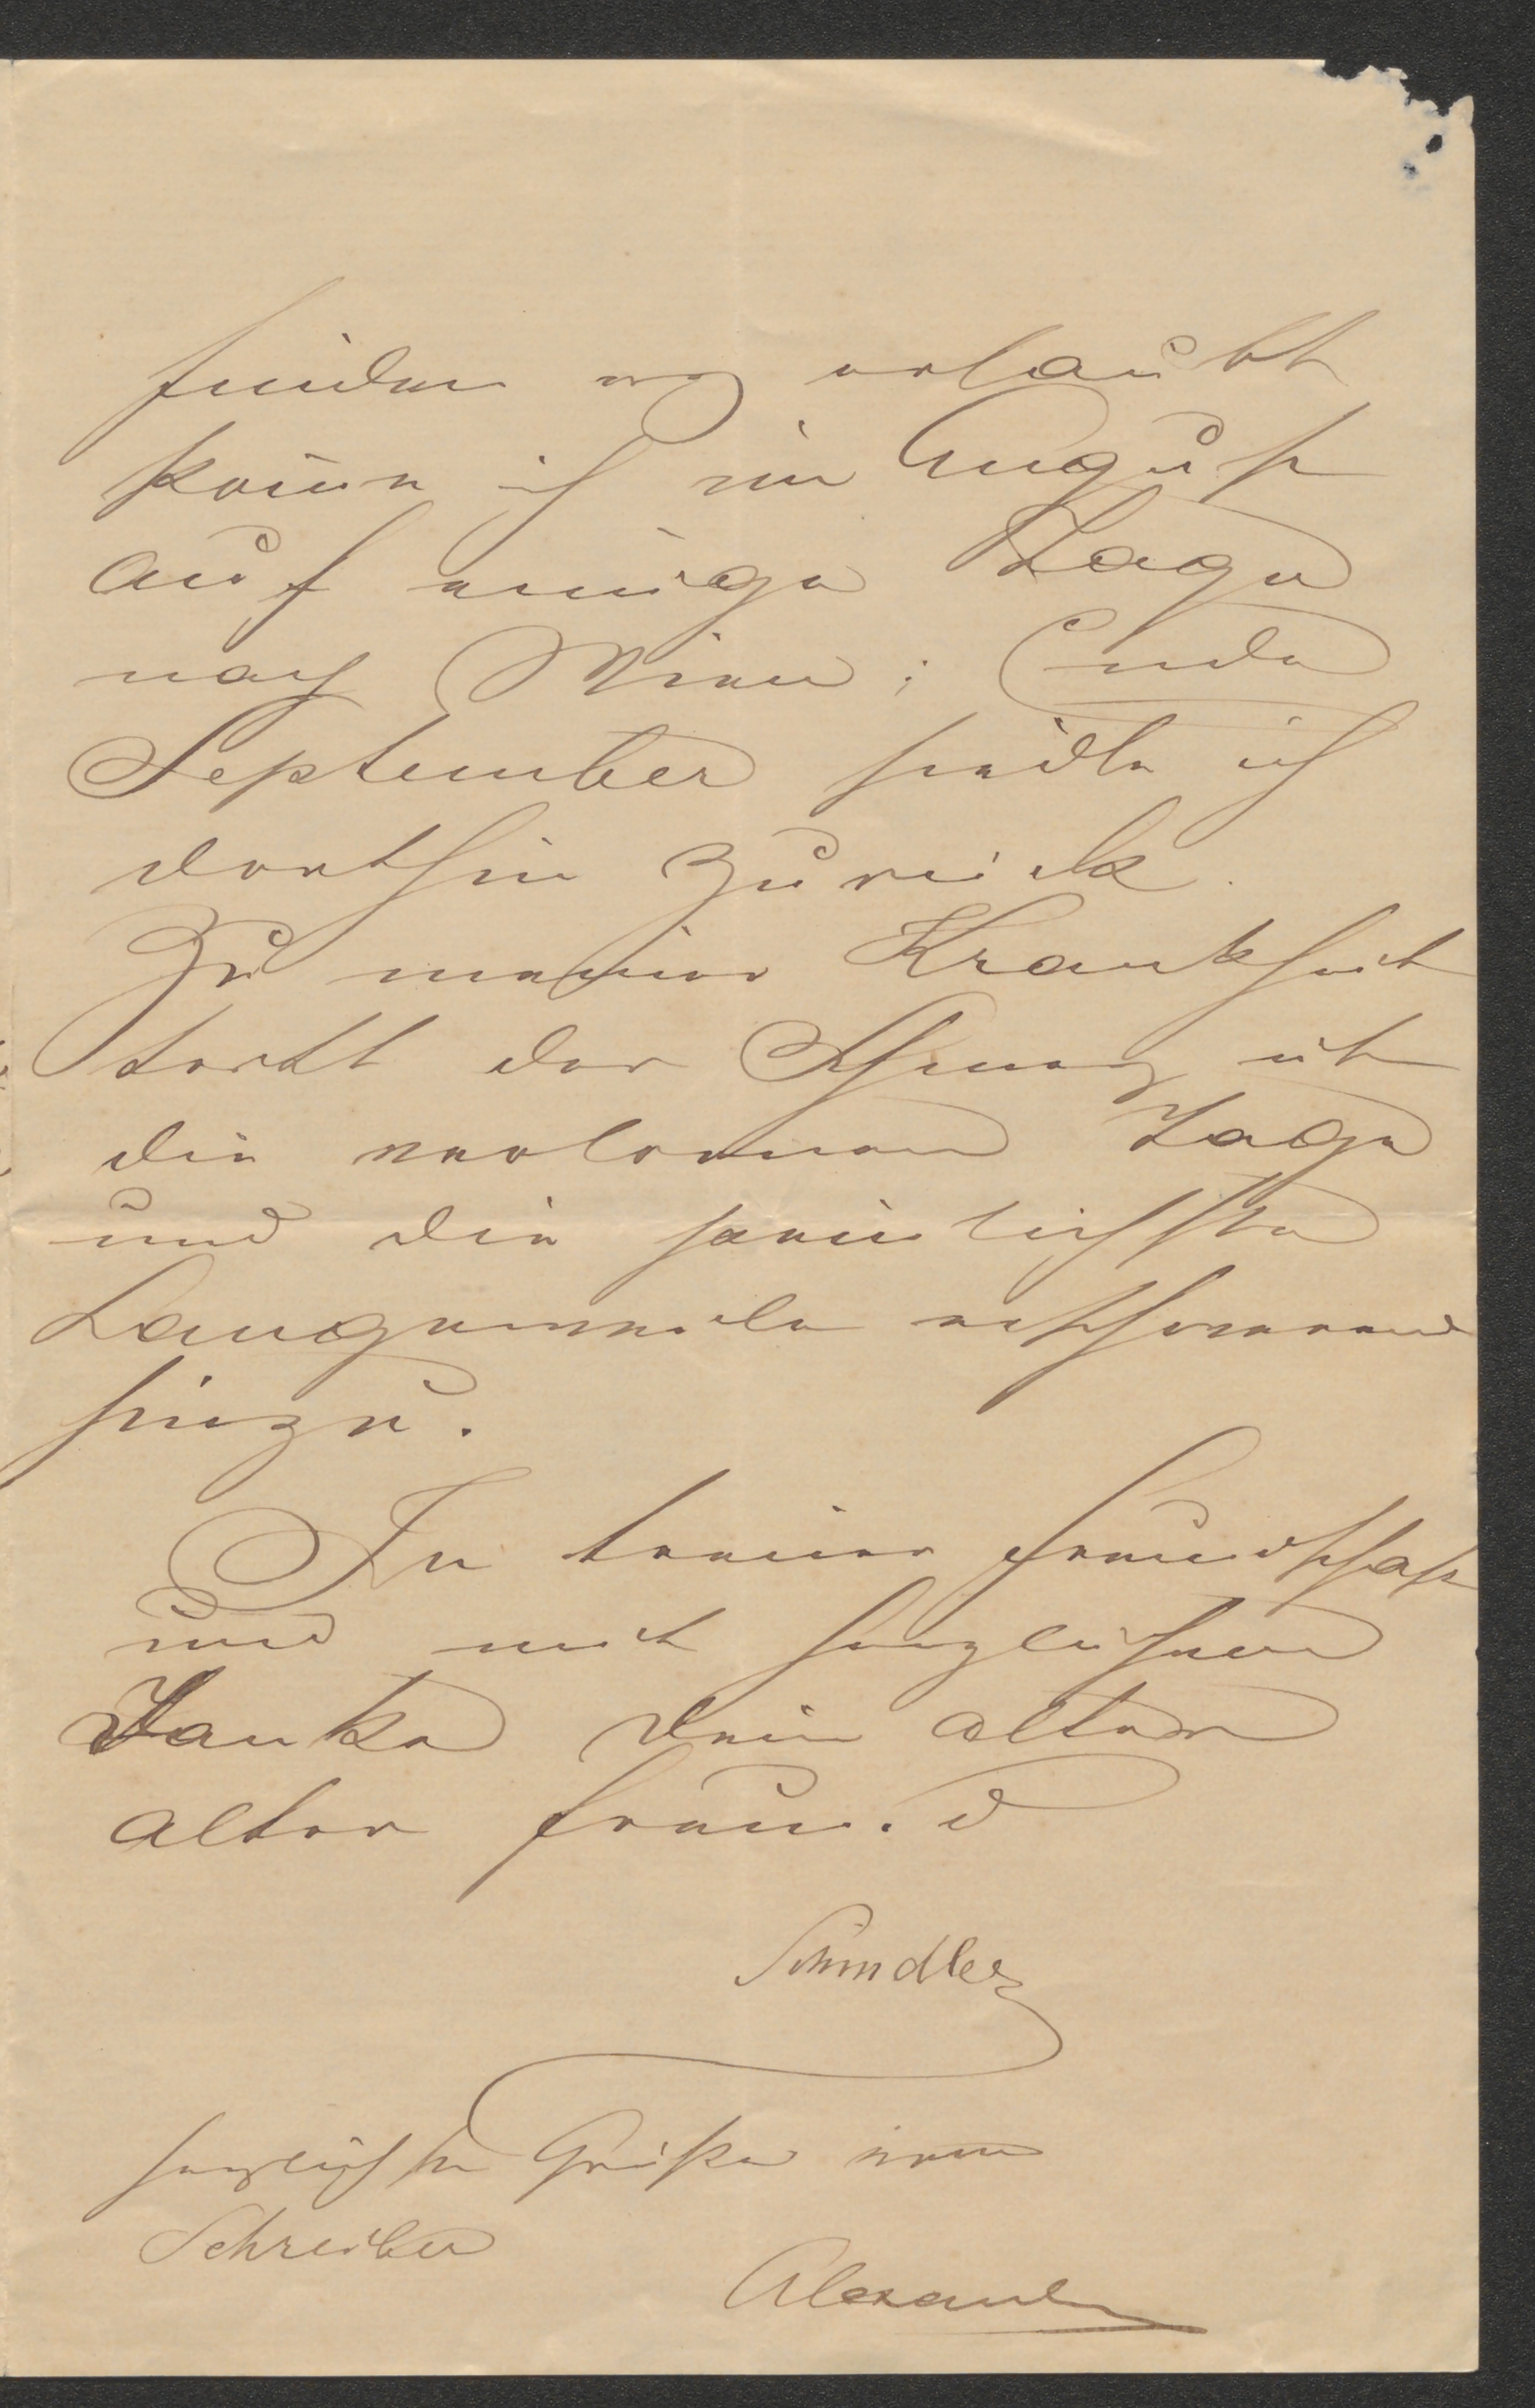 finden es erlaubt
komme ich im August
auf einige Tage
nach Wien; Ende
September siedle ich
dorthin zurück.
Zu meiner Krankheit
tritt der Schmerz üb
die verlorenen Tage
und die
Langeweile erschwerend
hinzu.
In treuer Freundschaft
und mit herzlichem
Danke Dein alter
alter Freund
Schindler
herzliche Grüße vom
Schreiber
Alexander